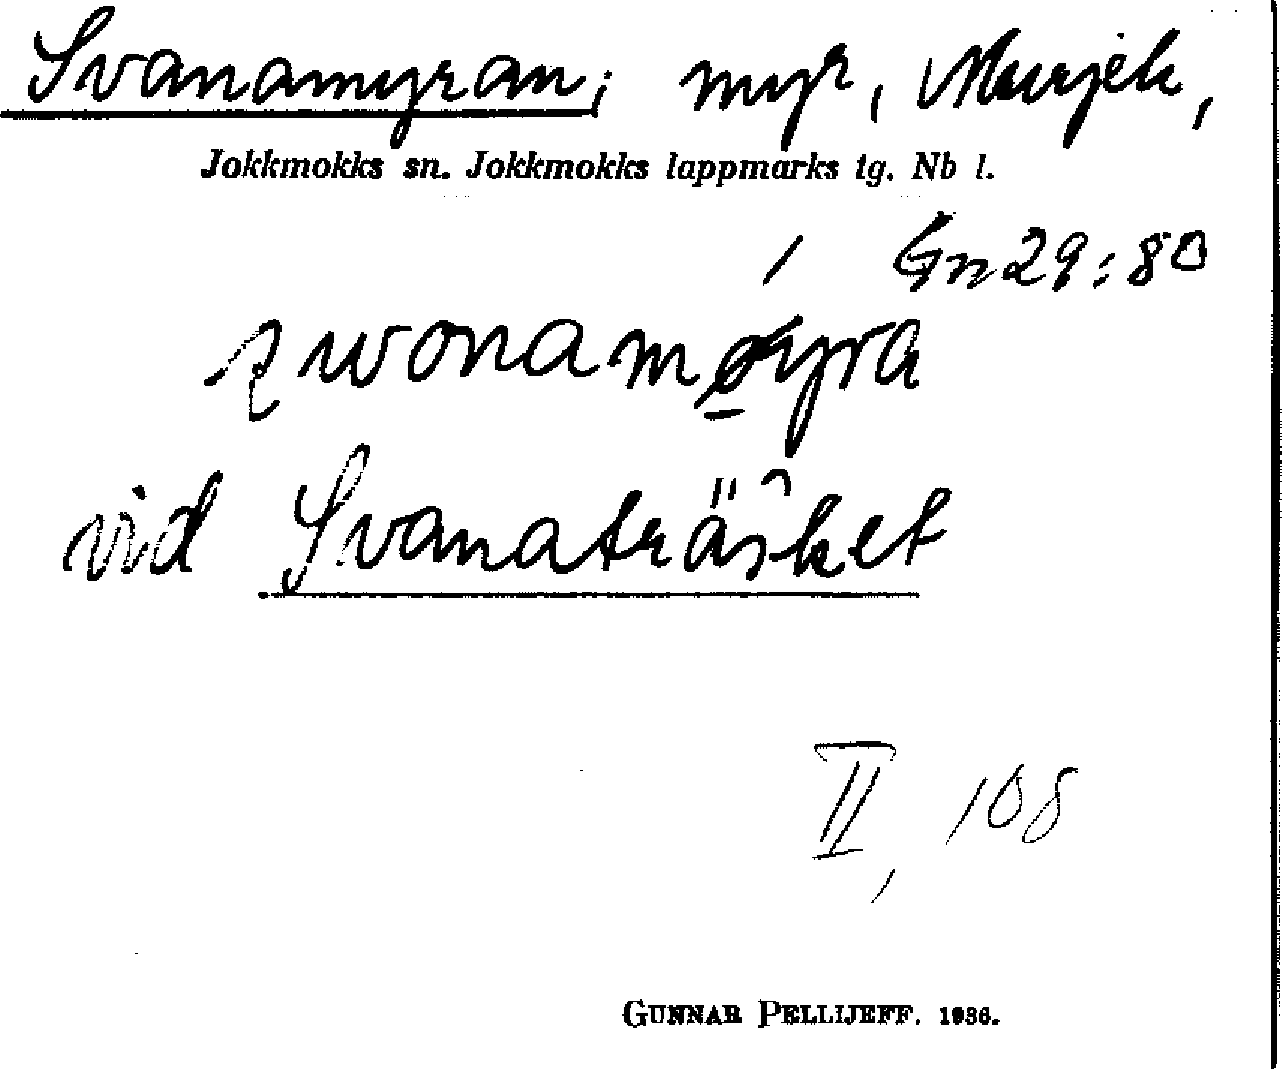 Svanamyran; myr, Murjek,
Jokkmokks sn. Jokkmokks lappmarks tg. Nb l.
Gn 29:80
vid Svanaträsket
II, 108
GUNNAR PELLIJEFF. 1936.